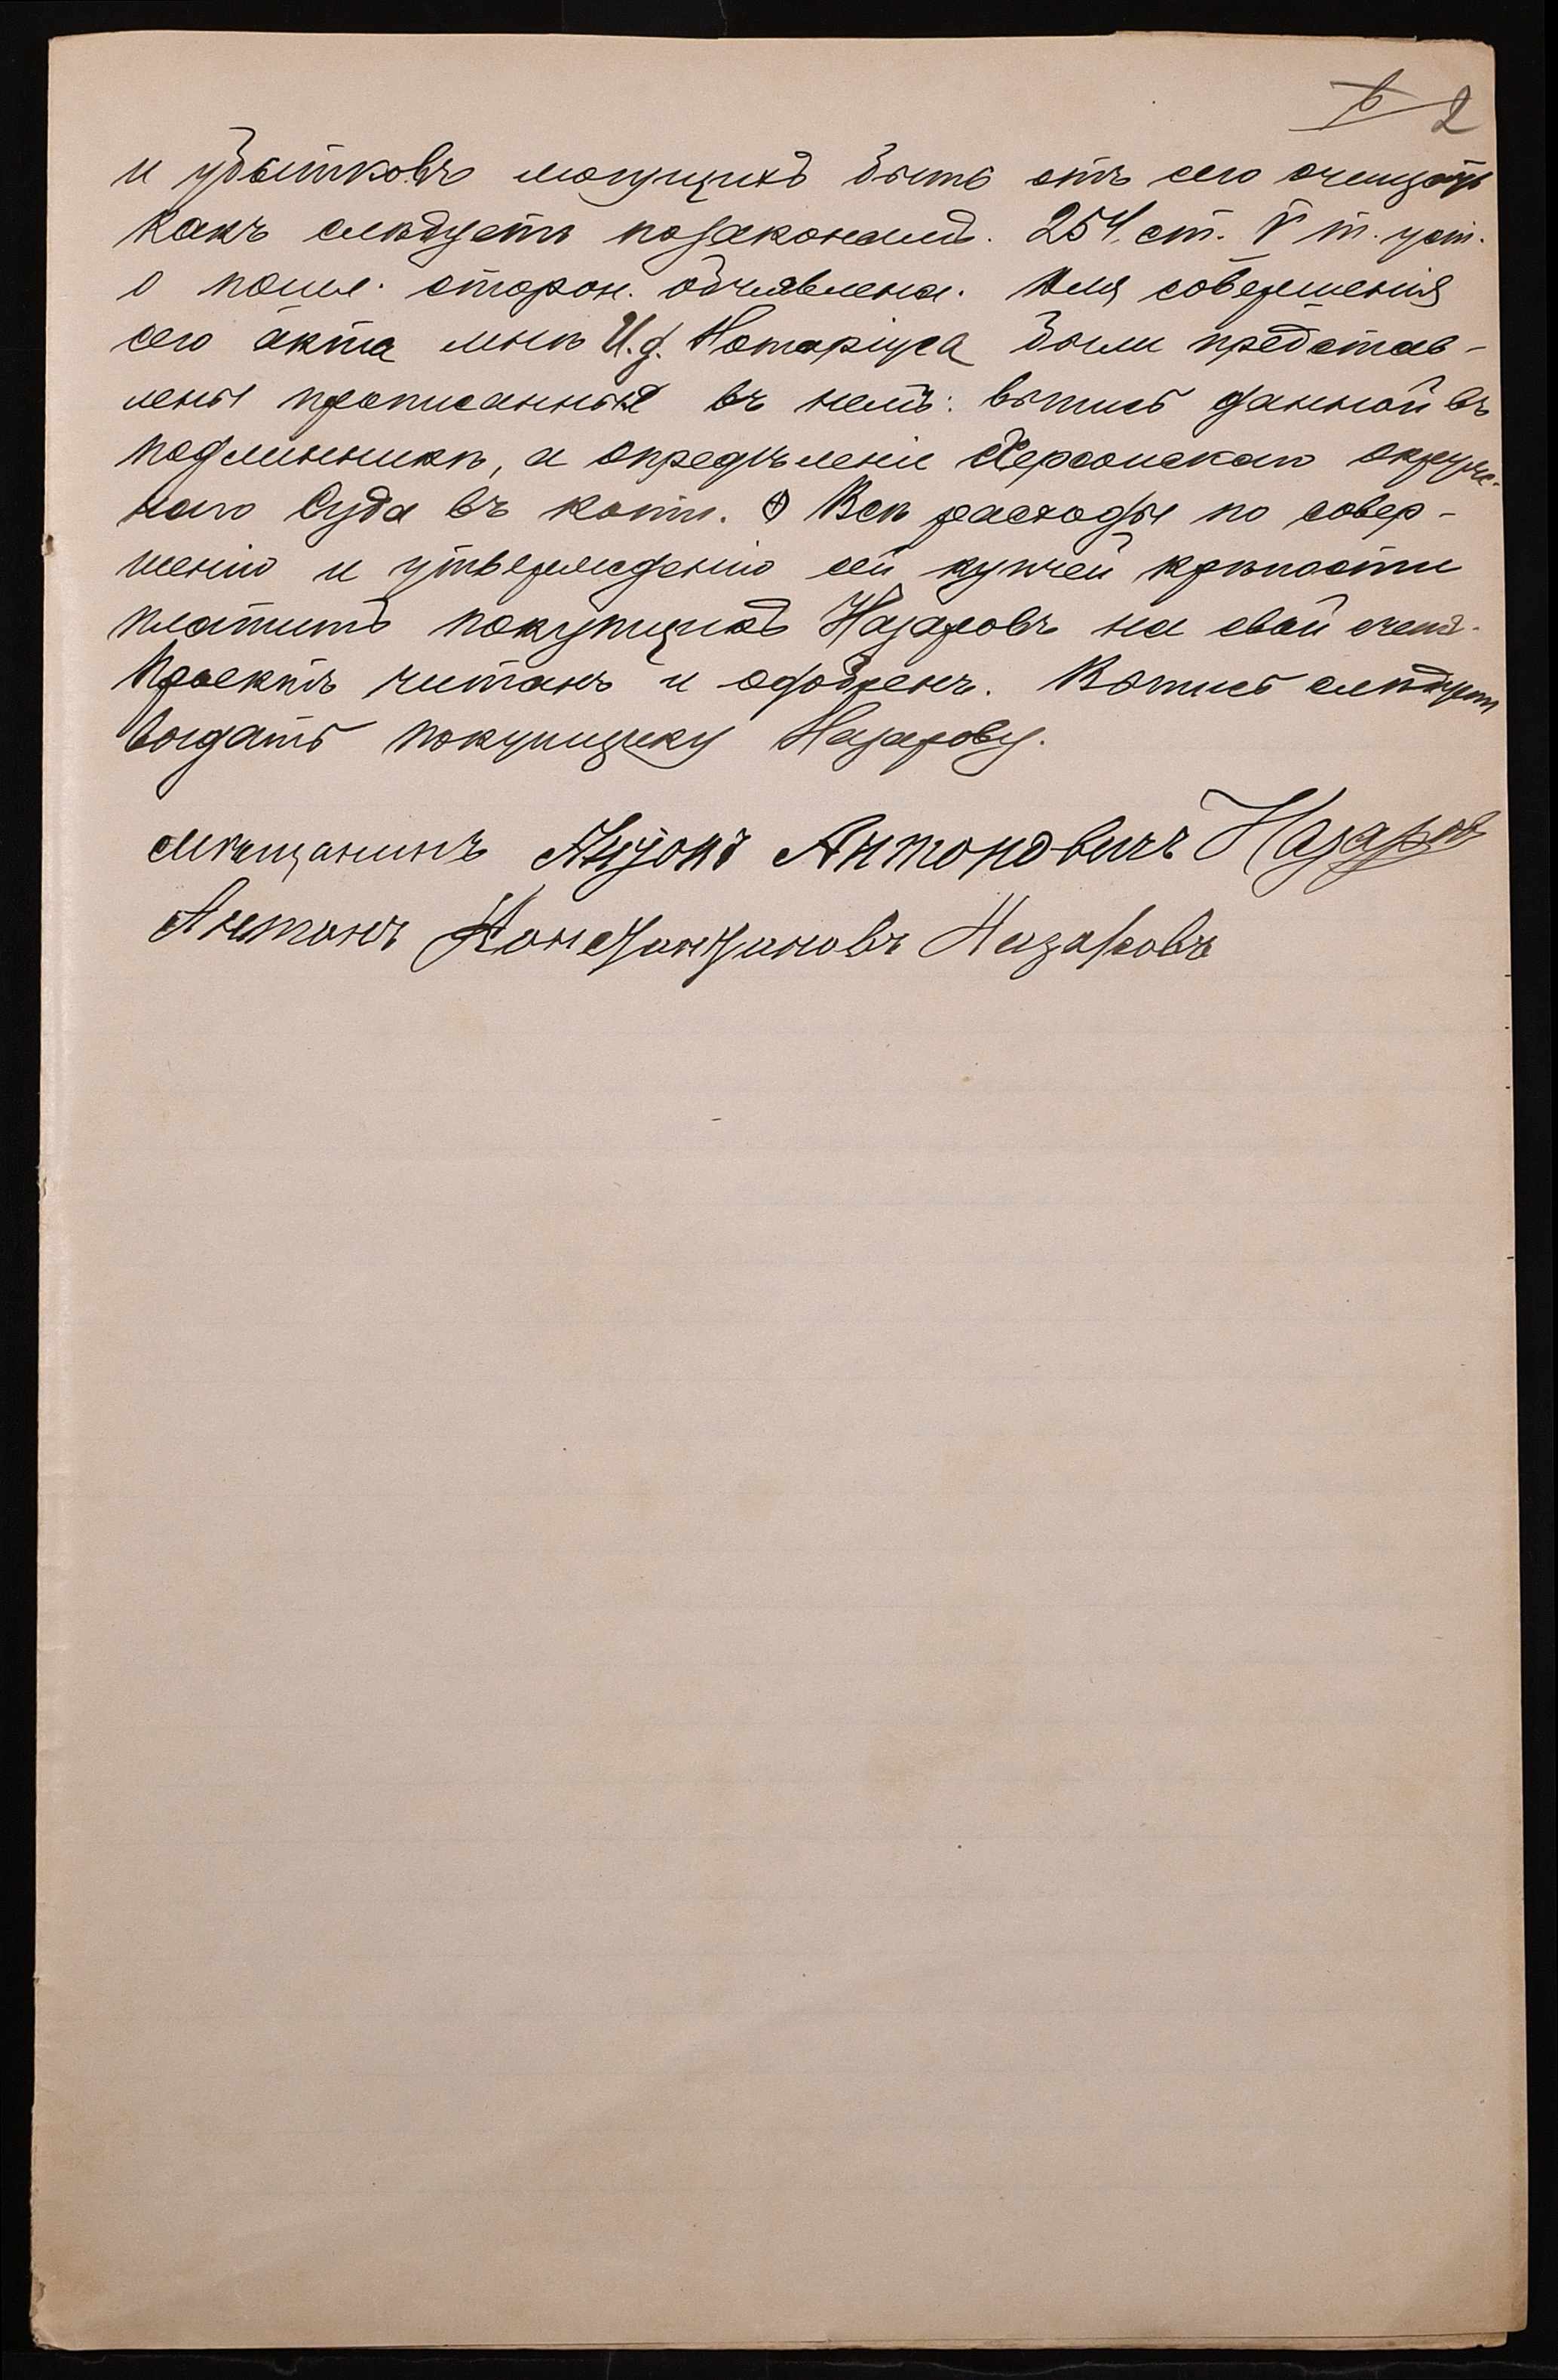 2
и убытковъ могущихъ быть отъ сего очищать
какъ слѣдуетъ позаконамъ. 254 ст. V т. уст.
о пошл. сторон. объявлена. Для совершенія
сего акта мнѣ И. д. Нотаріуса были представ-
лены прописанныя въ немъ: выпись данной въ
подлинникѣ, а опредѣленіе Херсонскаго окруж-
наго Суда въ копіи. Всѣ расходы по совер-
шенію и утвержденію сей купчей крѣпости
платитъ покупщикъ Назаровъ на свой счетъ.
Проектъ читанъ и одобренъ. Выпись слѣдуетъ
выдать покупщику Назарову.
Мѣщанинъ Антонъ Антоновичъ Назаровъ
Антонъ Константиновъ Назаровъ